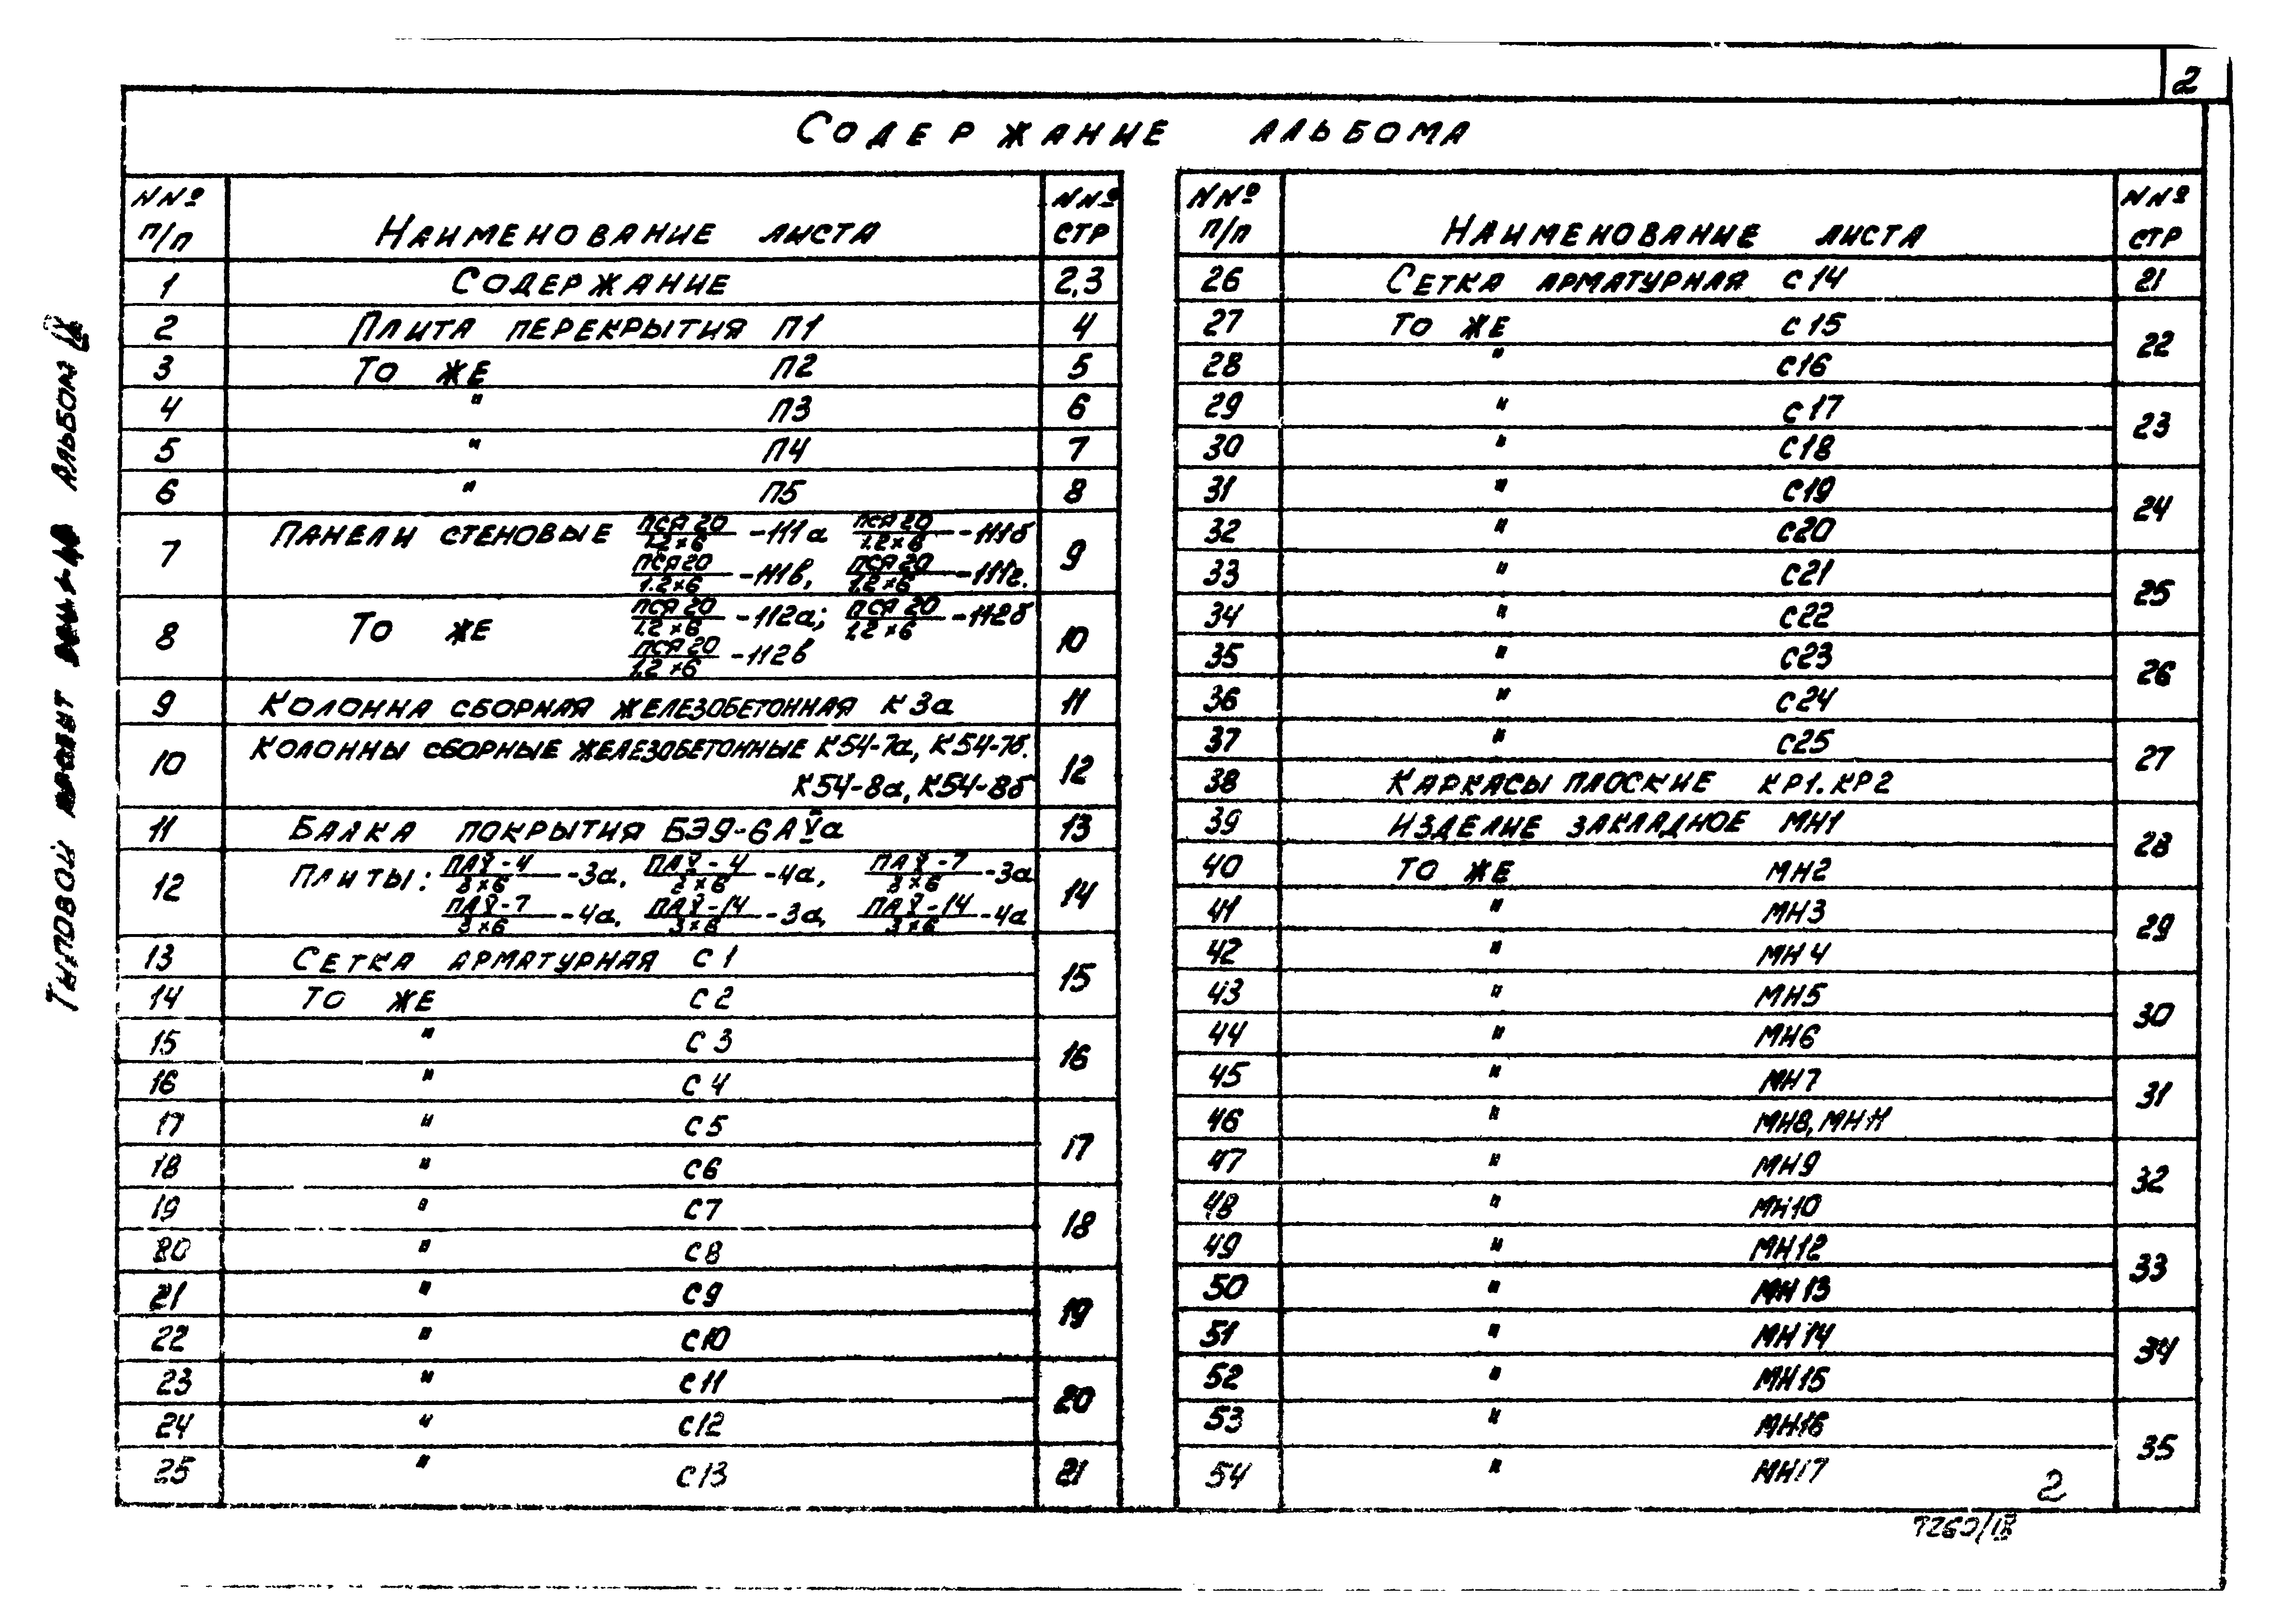 2
Содержание альбома
NNº п/п Наименование листа NNº стр
1 Содержание 2,3
2 Плита перекрытия П1 4
3 То же П2 5
4 " П3 6
5 " П4 7
6 " П5 8
7 Панели стеновые ПСЯ20/1.2×6 -111а ПСЯ20/1.2×6 -111б 9
ПСЯ20/1.2×6 -111в, ПСЯ20/1.2×6 -111г.
8 То же ПСЯ20/1.2×6 -112а; ПСЯ20/1.2×6 -112б 10
ПСЯ20/1.2×6 -112в
9 Колонна сборная железобетонная К3а 11
10 Колонны сборные железобетонные К54-7а, К54-7б. 12
К54-8а, К54-8б
11 Балка покрытия БЭ9-6АVа 13
12 Плиты: ПАV-4/3×6 -3а, ПАV-4/3×6 -4а, ПАV-7/3×6 -3а 14
ПАV-7/3×6 -4а, ПАV-14/3×6 -3а, ПАV-14/3×6 -4а
13 Сетка арматурная С1 15
14 То же С2
15 " С3 16
16 " С4
17 " С5 17
18 " С6
19 " С7 18
20 " С8
21 " С9 19
22 " С10
23 " С11 20
24 " С12
25 " С13 21
NNº п/п Наименование листа NNº стр
26 Сетка арматурная С14 21
27 То же С15 22
28 " С16
29 " С17 23
30 " С18
31 " С19 24
32 " С20
33 " С21 25
34 " С22
35 " С23 26
36 " С24
37 " С25 27
38 Каркасы плоские КР1. КР2
39 Изделие закладное МН1 28
40 То же МН2
41 " МН3 29
42 " МН4
43 " МН5 30
44 " МН6
45 " МН7 31
46 " МН8, МН11
47 " МН9 32
48 " МН10
49 " МН12 33
50 " МН13
51 " МН14 34
52 " МН15
53 " МН16 35
54 " МН17
2
7260/18
Типовой проект Альбом IX